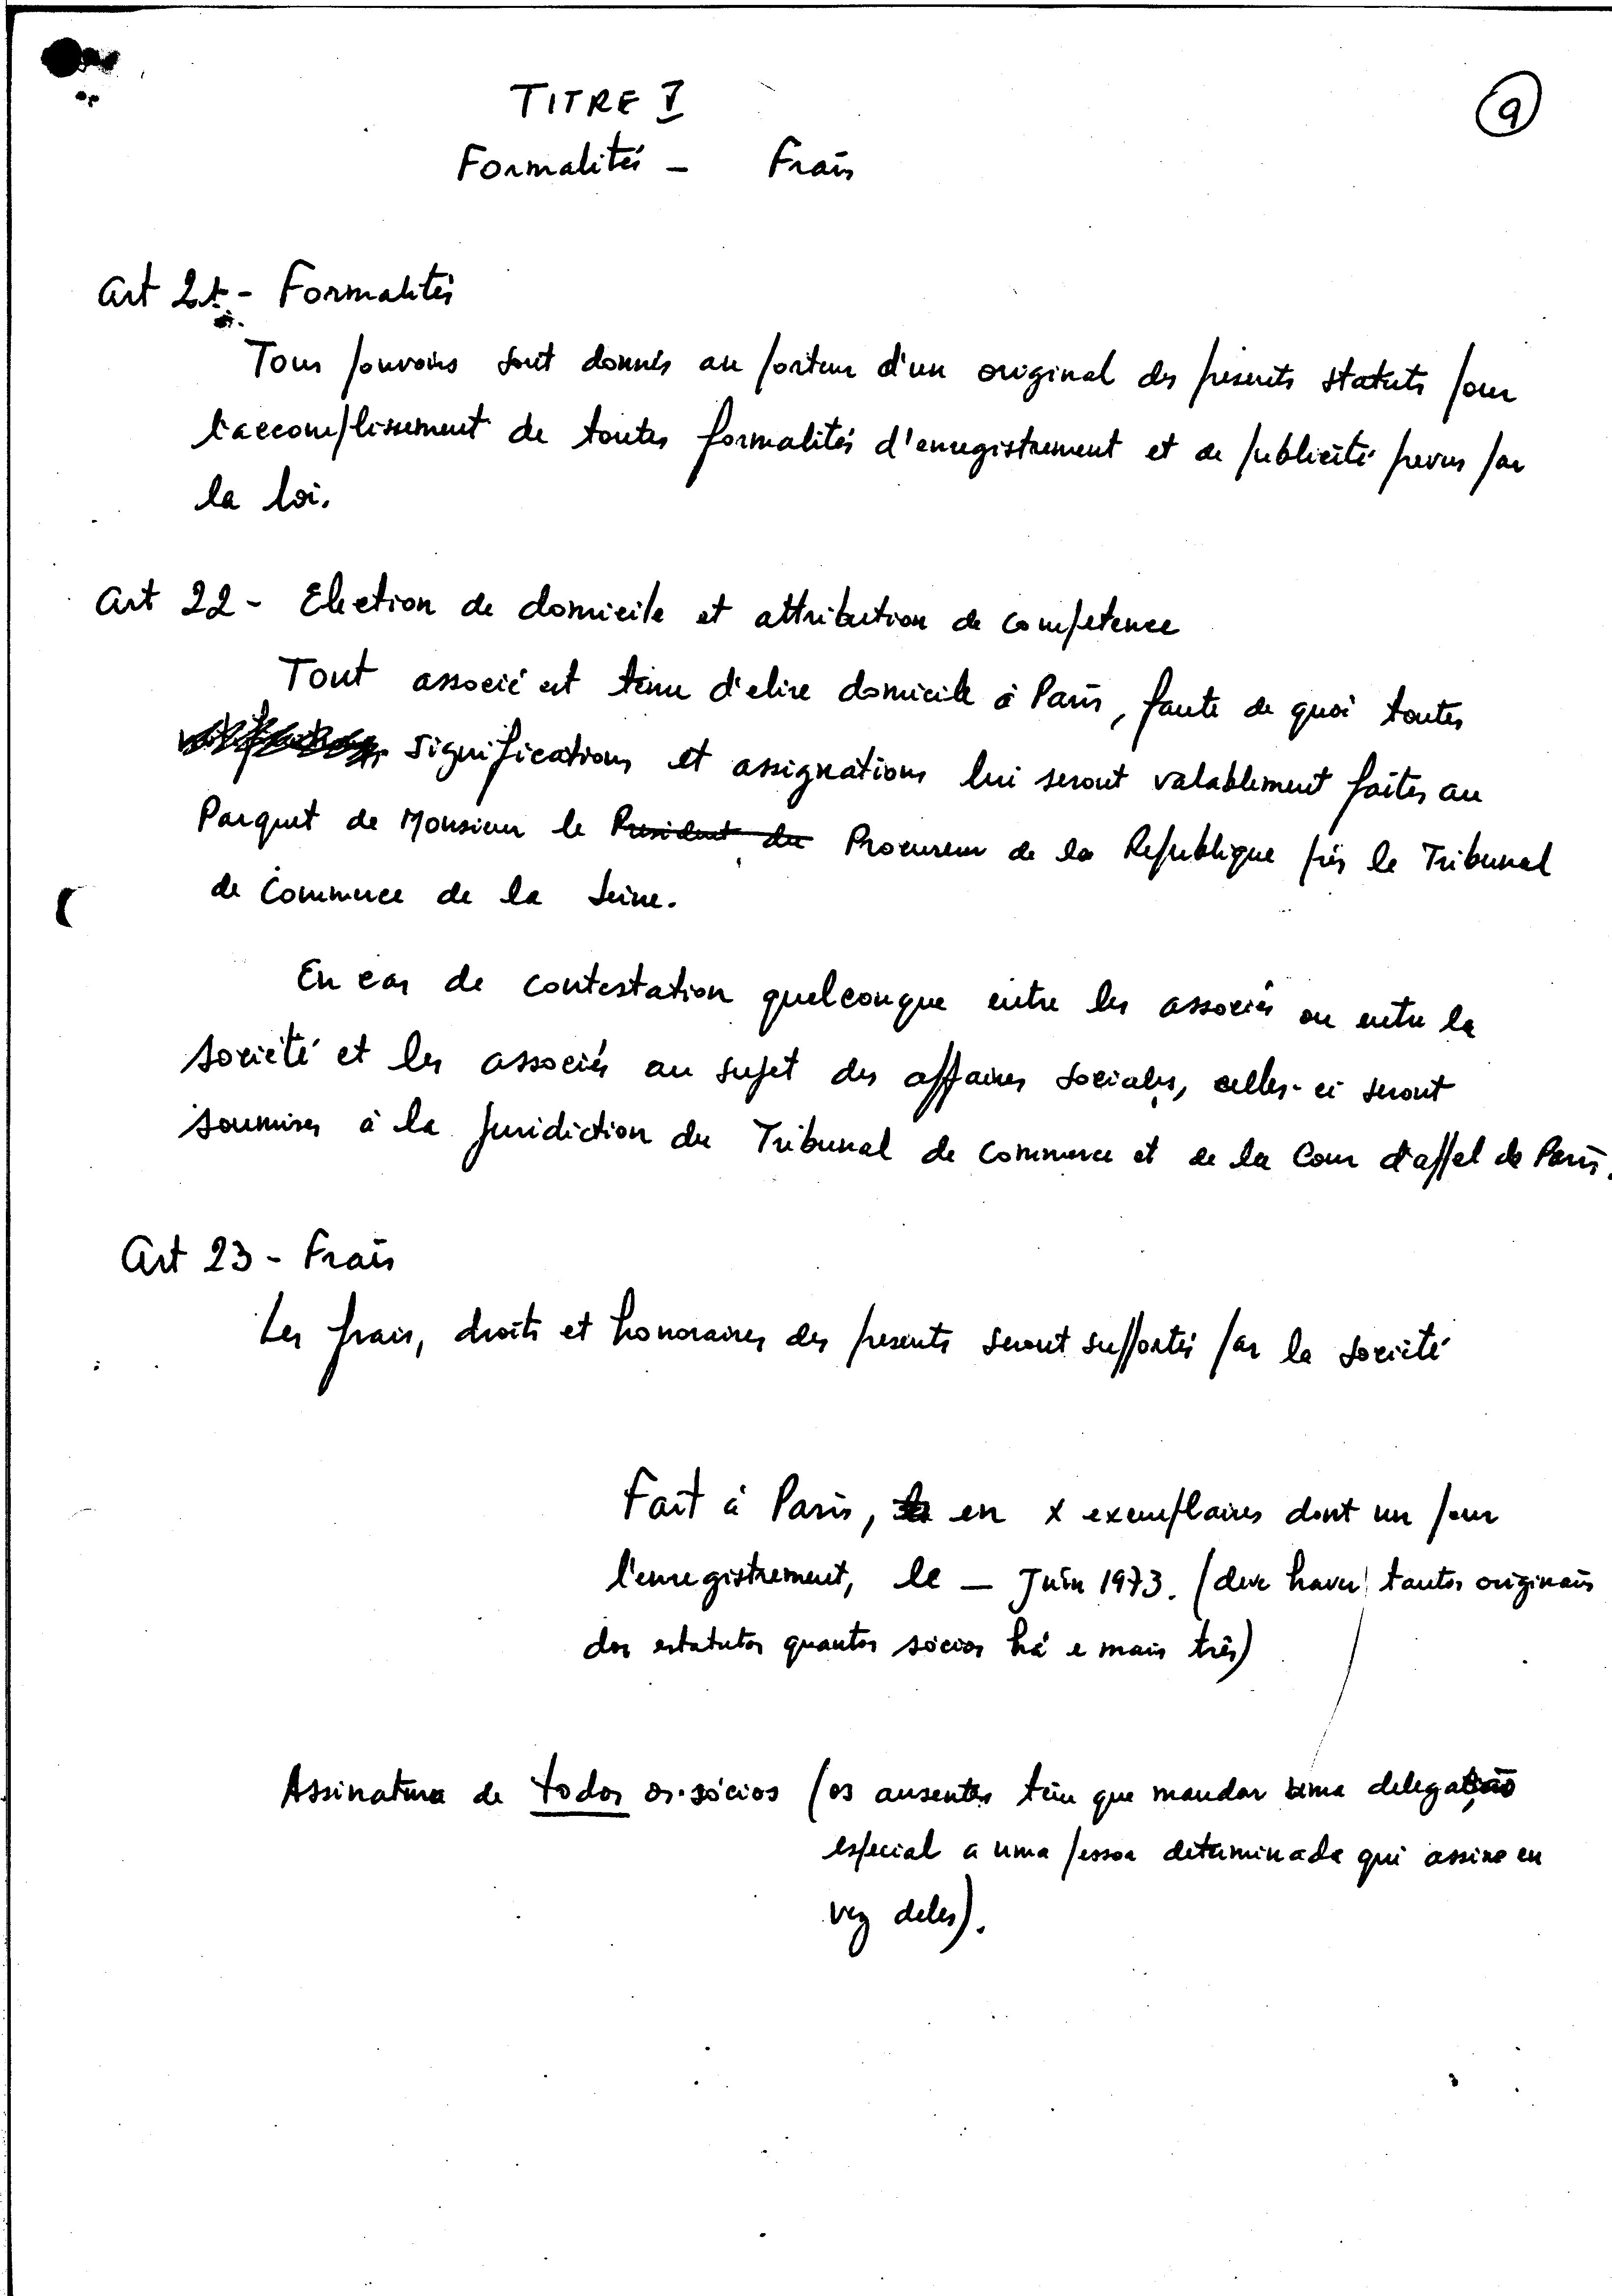 TITRE V
9
Formalités - Frais
Art 21 - Formalités
Tous pouvoirs sont donnés au porteur d'un original des présents statuts pour
l'accomplissement de toutes formalités d'enregistrement et de publicité prevus par
la loi.
Art 22 - Election de domicile et attribution de competence
Tout associé est tenu d'elire domicile à Paris, faute de quoi toutes
significations et assignations lui seront valablement faites au
Parquet de Monsieur le President du Procureur de la Republique près le Tribunal
de Commerce de la Seine.
En cas de contestation quelconque entre les associés ou entre la
société et les associés au sujet des affaires sociales, celles-ci seront
soumises à la juridiction du Tribunal de Commerce et de la Cour d'appel de Paris.
Art 23 - Frais
Les frais, droits et honoraires des presents seront supportés par la société
Fait à Paris, en x exemplaires dont un pour
l'enregistrement, le — Juin 1973. (deve haver tantos originais
dos estatutos quantos sócios há e mais três)
Assinatura de todos os sócios (os ausentes têm que mandar uma delegação
especial a uma pessoa determinada qui assine en
vez deles).